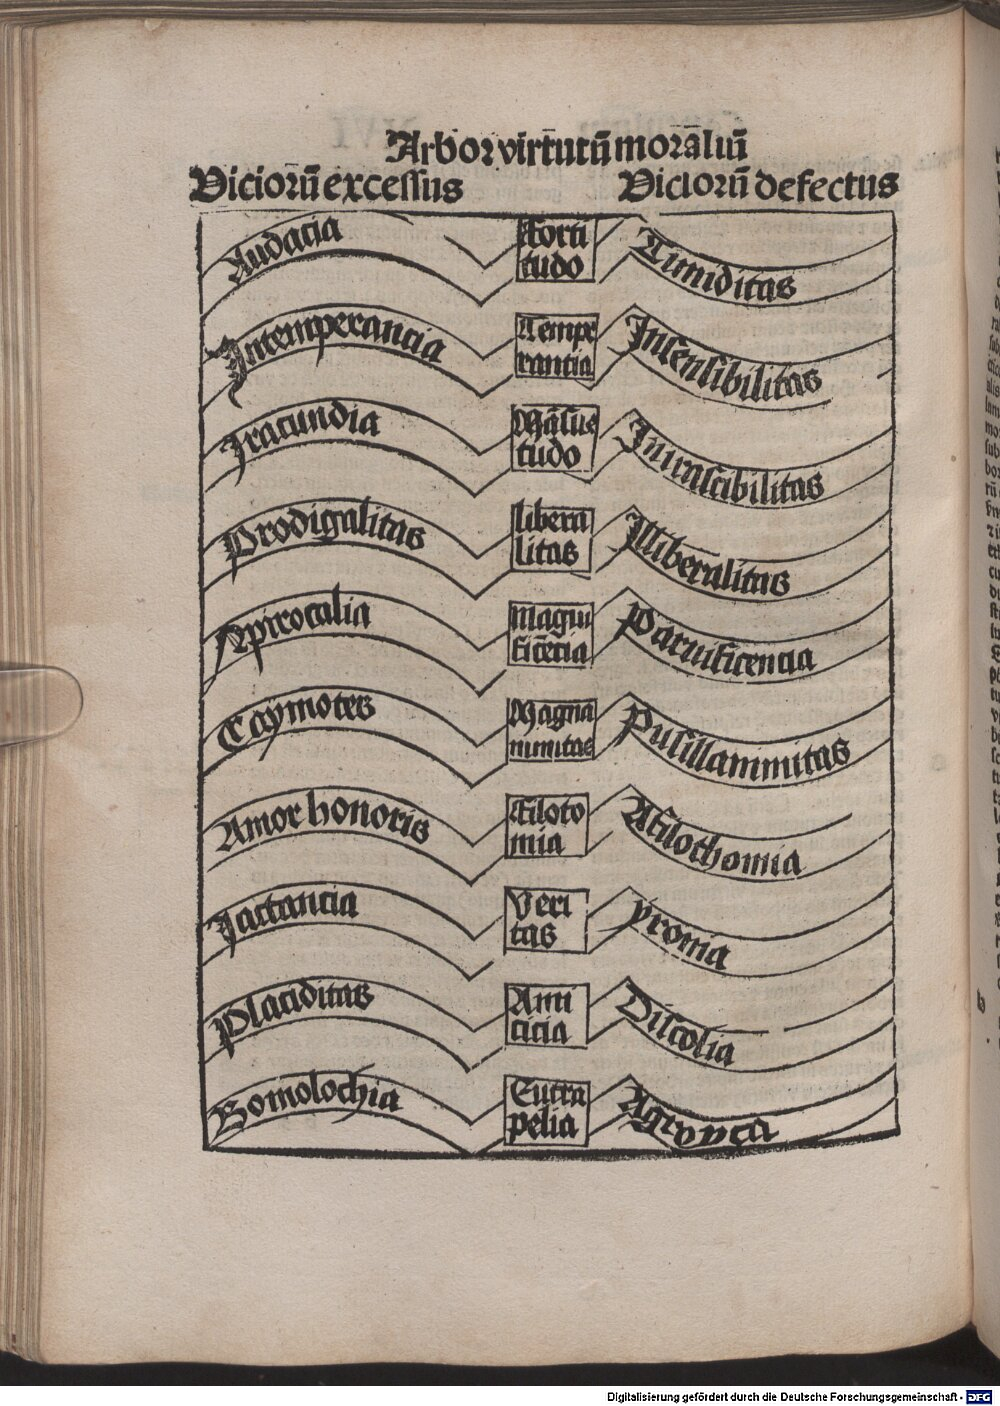 Arbor virtutū moraliū
Viciorū excessus Viciorū defectus
Audacia Forti
tudo Timiditas
Intemperancia Tempe
rantia Insensibilitas
Iracundia Māsue
tudo Inirascibilitas
Prodigalitas libera
litas Illiberalitas
Apirocalia Magni
ficēcia Parvificencia
Caymotes Magna
nimitas Pusillanimitas
Amor honoris Filoto
mia Afilothomia
Jactancia Veri
tas yronia
Placiditas Ami
cicia Discolia
Bomolochia Eutra
pelia
Digitalisierung gefördert durch die Deutsche Forschungsgemeinschaft - DFG